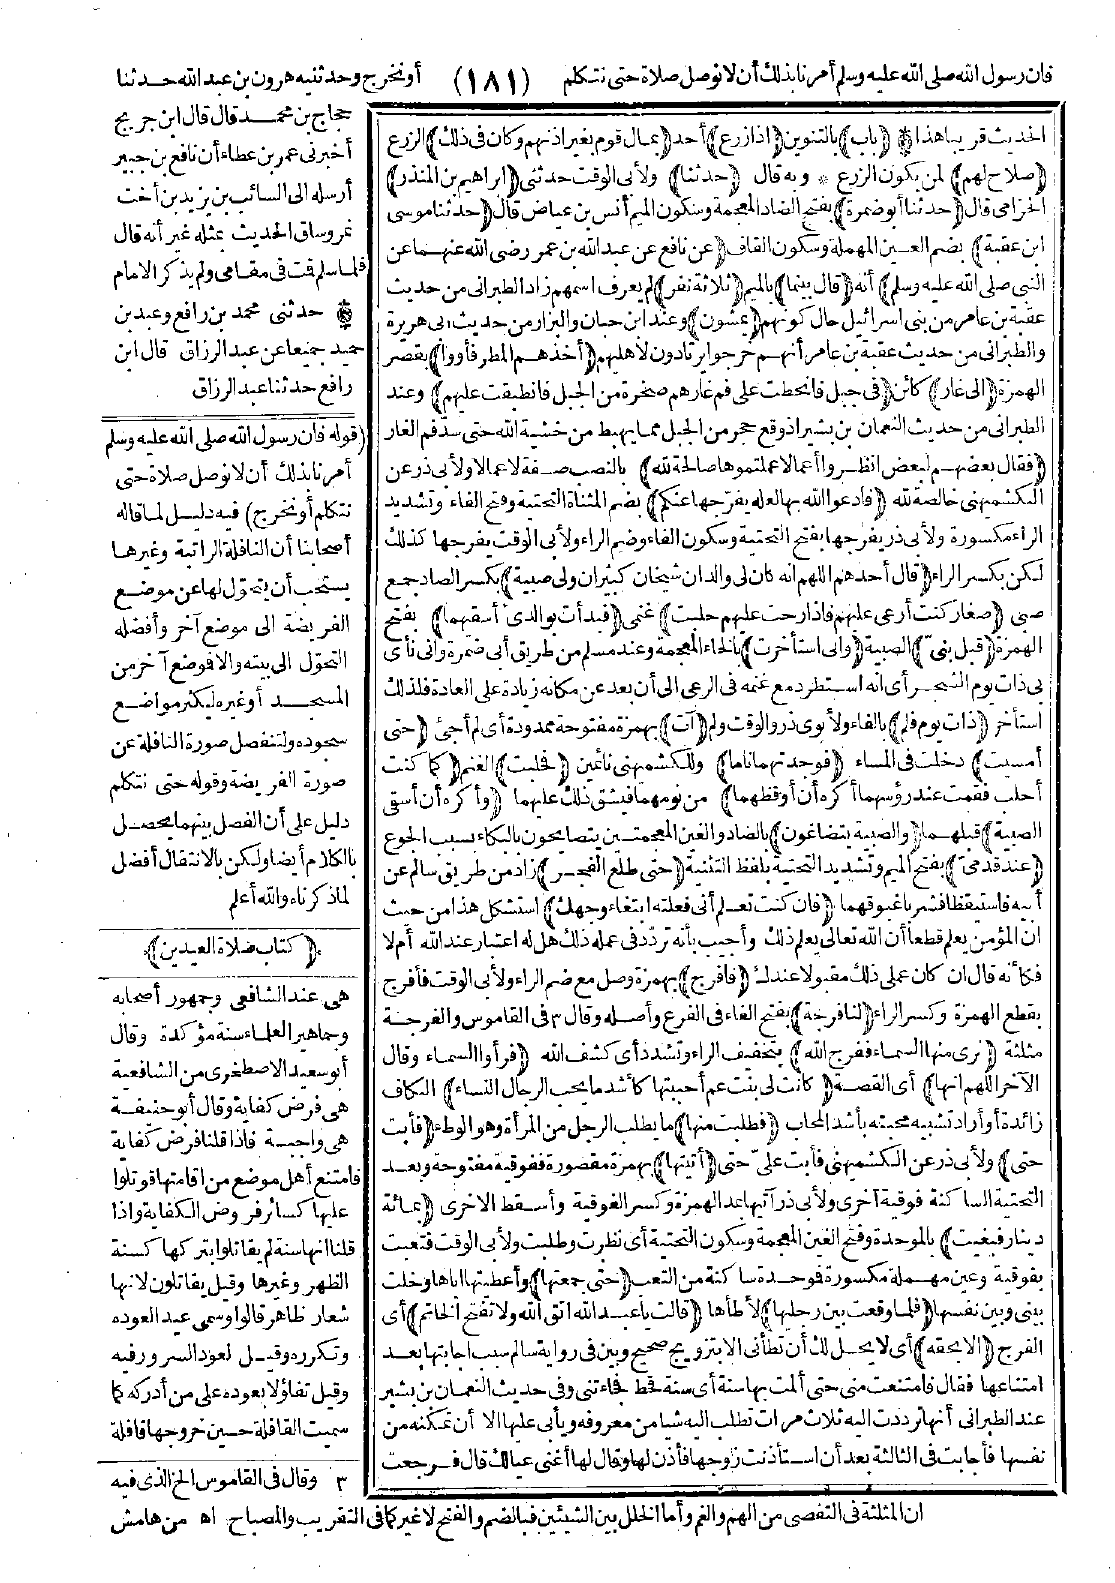 فان رسول الله صلى الله عليه وسلم أمرنا بذلك أن لا نوصل صلاة حتى نتكلم (١٨١) أو نخرج وحدثنيه هرون بن عبد الله حدثنا
الحديث قريبا هذا (باب) بالتنوين (اذا زرع) أحد (بمال قوم بغير اذنهم وكان في ذلك) الزرع
(صلاح لهم) لمن يكون الزرع * وبه قال (حدثنا) ولأبي الوقت حدثني (ابراهيم بن المنذر)
الحزامي قال (حدثنا أبو ضمرة) بفتح الضاد المعجمة وسكون الميم أنس بن عياض قال (حدثنا موسى
ابن عقبة) بضم العين المهملة وسكون القاف (عن نافع عن عبد الله بن عمر رضى الله عنهما عن
النبي صلى الله عليه وسلم) أنه (قال بينما) بالميم (ثلاثة نفر) لم يعرف اسمهم زاد الطبراني من حديث
عقبة بن عامر من بني اسرائيل حال كونهم (يمشون) وعند ابن حبان والبزار من حديث أبي هريرة
والطبراني من حديث عقبة بن عامر أنهم خرجوا يرتادون لأهليهم (أخذهم المطر فأووا) بقصر
الهمزة (الى غار) كائن (في جبل فانحطت على فم غارهم صخرة من الجبل فانطبقت عليهم) وعند
الطبراني من حديث النعمان بن بشير اذ وقع حجر من الجبل مما يهبط من خشية الله حتى سد فم الغار
(فقال بعضهم لبعض انظروا أعمالا عملتموها صالحة لله) بالنصب صفة لأعمالا ولأبي ذر عن
الكشميهني خالصة لله (فادعوا الله بها لعله يفرجها عنكم) بضم المثناة التحتية وفتح الفاء وتشديد
الراء مكسورة ولأبي ذر يفرجها بفتح التحتية وسكون الفاء وضم الراء ولأبي الوقت يفرجها كذلك
لكن بكسر الراء (قال أحدهم اللهم انه كان لى والدان شيخان كبيران ولى صبية) بكسر الصاد جمع
صبي (صغار كنت أرعى عليهم فاذا رحت عليهم حلبت) غنمي (فبدأت بوالدى أسقيهما) بفتح
الهمزة (قبل بنىّ) الصبية (وانى استأخرت) بالخاء المعجمة وعند مسلم من طريق أبي ضمرة واني نأى
بي ذات يوم الشجر أى انه استطرد مع غنمه في الرعى الى أن بعد عن مكانه زيادة على العادة فلذلك
استأخر (ذات يوم فلم) بالفاء ولأبوي ذر والوقت ولم (آت) بهمزة مفتوحة ممدودة أى لم أجئ (حتى
أمسيت) دخلت في المساء (فوجدتهما ناما) وللكشميهني نائمين (فحلبت) الغنم (كما كنت
أحلب فقمت عند رؤسهما أكره أن أوقظهما) من نومهما فيشق ذلك عليهما (وأكره أن أسقي
الصبية) قبلهما (والصبية يتضاغون) بالضاد والغين المعجمتين يتصايحون بالبكاء بسبب الجوع
(عند قدمىّ) بفتح الميم وتشديد التحتية بلفظ التثنية (حتى طلع الفجر) زاد من طريق سالم عن
أبيه فاستيقظا فشربا غبوقهما (فان كنت تعلم أنى فعلته ابتغاء وجهك) استشكل هذا من حيث
ان المؤمن يعلم قطعا أن الله تعالى يعلم ذلك وأجيب بأنه تردّد في عمله ذلك هل له اعتبار عند الله أم لا
فكأنه قال ان كان عملي ذلك مقبولا عندك (فافرج) بهمزة وصل مع ضم الراء ولأبي الوقت فأفرج
بقطع الهمزة وكسر الراء (لنا فرجة) بفتح الفاء في الفرع وأصله وقال ٣ في القاموس والفرجة
مثلثة (نرى منها السماء ففرج الله) بتخفيف الراء وتشدد أى كشف الله (فرأوا السماء وقال
الآخر اللهم انها) أى القصة (كانت لى بنت عم أحببتها كأشد ما يحب الرجال النساء) الكاف
زائدة أو أراد تشبيه محبته بأشد المحاب (فطلبت منها) ما يطلب الرجل من المرأة وهو الوطء (فأبت
حتى) ولأبي ذر عن الكشميهني فأبت علىّ حتى (أتيتها) بهمزة مقصورة ففوقية مفتوحة وبعد
التحتية الساكنة فوقية أخرى ولأبي ذر آتيها بمد الهمزة وكسر الفوقية وأسقط الاخرى (بمائة
دينار فبغيت) بالموحدة وفتح الغين المعجمة وسكون التحتية أى نظرت وطلبت ولأبي الوقت فتعبت
بفوقية وعين مهملة مكسورة فوحدة ساكنة من التعب (حتى جمعتها) وأعطيتها اياها وخلت
بيني وبين نفسها (فلما وقعت بين رجليها) لأطأها (قالت يا عبد الله اتق الله ولا تفتح الخاتم) أى
الفرج (الا بحقه) أى لا يحل لك أن تطأني الا بتزويج صحيح وبين في رواية سالم سبب اجابتها بعد
امتناعها فقال فامتنعت مني حتى ألمت بها سنة أى سنة قحط فجاءتني وفي حديث النعمان بن بشير
عند الطبراني أنها ترددت اليه ثلاث مرات تطلب اليه شيأ من معروفه ويأبى عليها الا أن تمكنه من
نفسها فأجابت في الثالثة بعد أن استأذنت زوجها فأذن لها وقال لها أغني عيالك قال فرجعت
حجاج بن محمد قال قال ابن جريج
أخبرني عمر بن عطاء أن نافع بن جبير
أرسله الى السائب بن يزيد ابن أخت
نمر وساق الحديث بمثله غير أنه قال
فلما سلم قمت في مقامي ولم يذكر الامام
حدثني محمد بن رافع وعبد بن
حميد جميعا عن عبد الرزاق قال ابن
رافع حدثنا عبد الرزاق
(قوله فان رسول الله صلى الله عليه وسلم
أمرنا بذلك أن لا نوصل صلاة حتى
نتكلم أو نخرج) فيه دليل لما قاله
أصحابنا أن النافلة الراتبة وغيرها
يستحب أن يتحوّل لها عن موضع
الفريضة الى موضع آخر وأفضله
التحوّل الى بيته والا فموضع آخر من
المسجد أو غيره ليكثر مواضع
سجوده ولتنفصل صورة النافلة عن
صورة الفريضة وقوله حتى نتكلم
دليل على أن الفصل بينهما يحصل
بالكلام أيضا ولكن بالانتقال أفضل
لما ذكرناه والله أعلم
(كتاب صلاة العيدين)
هى عند الشافعى وجمهور أصحابه
وجماهير العلماء سنة مؤكدة وقال
أبو سعيد الاصطخرى من الشافعية
هى فرض كفاية وقال أبو حنيفة
هى واجبة فاذا قلنا فرض كفاية
فامتنع أهل موضع من اقامتها قوتلوا
عليها كسائر فروض الكفاية واذا
قلنا انها سنة لم يقاتلوا بتركها كسنة
الظهر وغيرها وقيل يقاتلون لانها
شعار ظاهر قالوا وسمى عيد العوده
وتكرره وقيل لعود السرور فيه
وقيل تفاؤلا بعوده على من أدركه كما
سميت القافلة حين خروجها قافلة
٣ وقال في القاموس الخ الذى فيه
ان المثلثة في التفصى من الهم والغم وأما الخلل بين الشيئين فبالضم والفتح لا غير كما في التقريب والمصباح اه من هامش